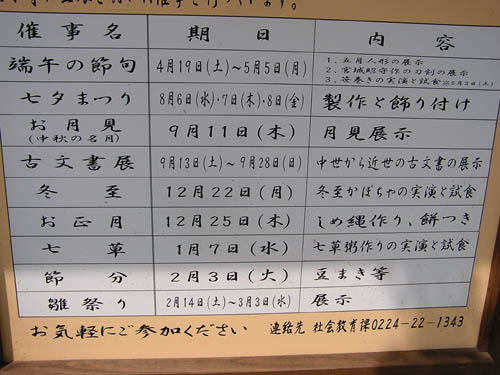 催事名 期日 内容
端午の節句 4月19日(土)～5月5日(月) 1、五月人形の展示
2、宮城昭守作の刀剣の展示
3、笹巻きの実演と試食※5月3日(土)
七夕まつり 8月6日(水)・7日(木)・8日(金) 製作と飾り付け
お月見 9月11日(木) 月見展示
(中秋の名月)
古文書展 9月13日(土)～9月28日(日) 中世から近世の古文書の展示
冬至 12月22日(月) 冬至かぼちゃの実演と試食
お正月 12月25日(木) しめ縄作り、餅つき
七草 1月7日(水) 七草粥作りの実演と試食
節分 2月3日(火) 豆まき等
雛祭り 2月14日(土)～3月3日(水) 展示
お気軽にご参加ください 連絡先 社会教育課0224-22-1343